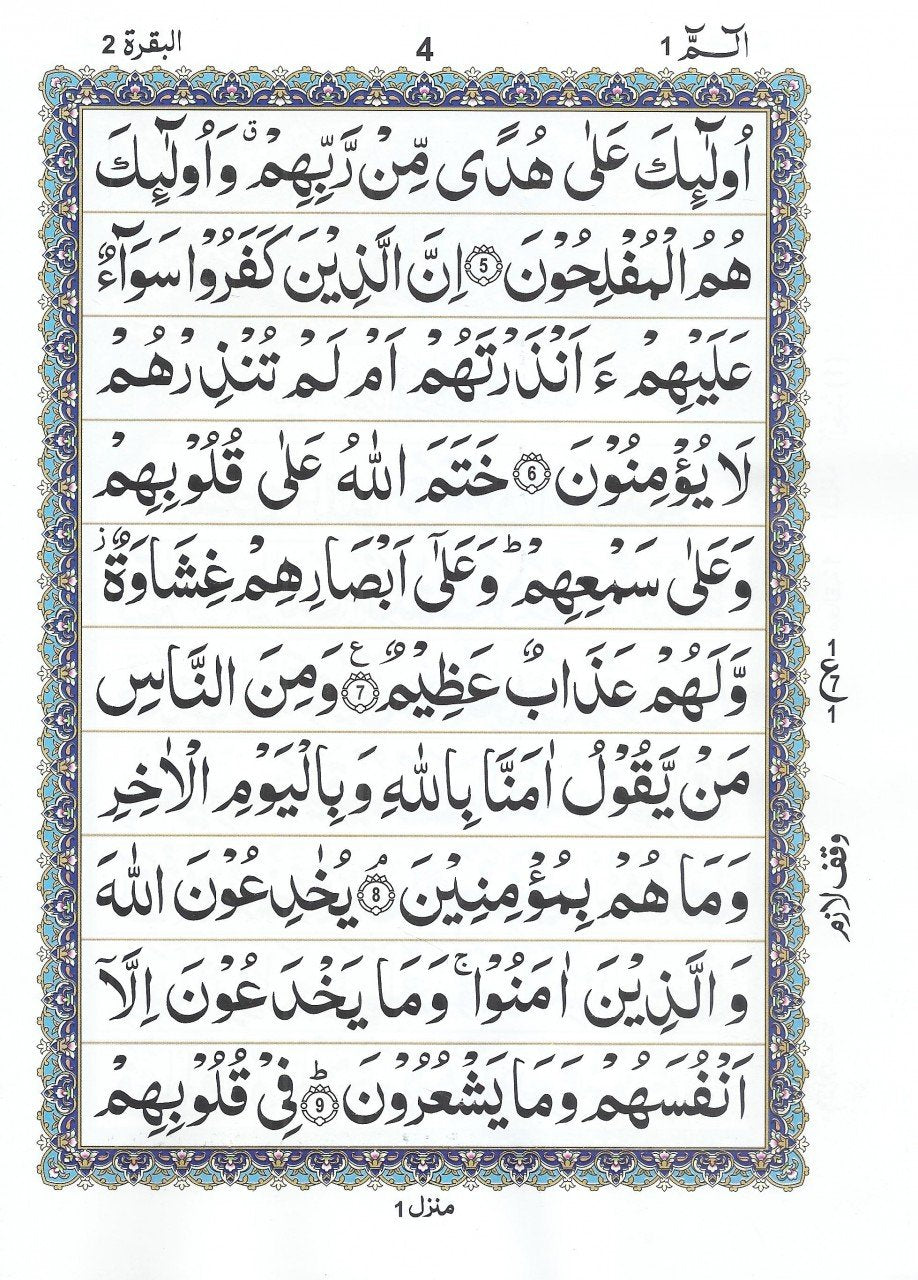 الٓـمّٓ 1
4
البقرة 2
اُولٰٓئِكَ عَلٰى هُدًى مِّنْ رَّبِّهِمْ ۗ وَاُولٰٓئِكَ
هُمُ الْمُفْلِحُوْنَ 5 اِنَّ الَّذِيْنَ كَفَرُوْا سَوَآءٌ
عَلَيْهِمْ ءَاَنْذَرْتَهُمْ اَمْ لَمْ تُنْذِرْهُمْ
لَا يُؤْمِنُوْنَ 6 خَتَمَ اللّٰهُ عَلٰى قُلُوْبِهِمْ
وَعَلٰى سَمْعِهِمْ ؕ وَعَلٰٓى اَبْصَارِهِمْ غِشَاوَةٌ ز
وَّلَهُمْ عَذَابٌ عَظِيْمٌ 7 ع وَمِنَ النَّاسِ
1
ع
7
1
مَنْ يَّقُوْلُ اٰمَنَّا بِاللّٰهِ وَبِالْيَوْمِ الْاٰخِرِ
وَمَا هُمْ بِمُؤْمِنِيْنَ ۘ 8 يُخٰدِعُوْنَ اللّٰهَ
وقف لازم
وَالَّذِيْنَ اٰمَنُوْا ۚ وَمَا يَخْدَعُوْنَ اِلَّآ
اَنْفُسَهُمْ وَمَا يَشْعُرُوْنَ ؕ 9 فِيْ قُلُوْبِهِمْ
منزل 1